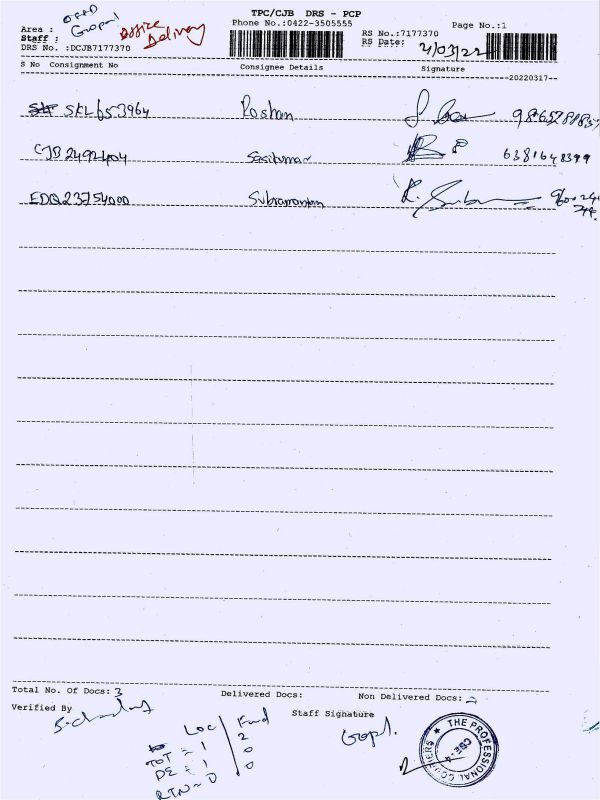 TPC/CJB DRS - PCP
Area : OFFD Phone No.:0422-3505555 Page No.:1
Staff : Gopal Office Delivery RS No.:7177370
DRS No. :DCJB7177370 RS Date: 21/03/22
S No Consignment No Consignee Details Signature
--20220317--
SKL653964 Roshan
CJB2492404 Sasikumar 6381648399
EDQ23754000 Subramanian
Total No. Of Docs: 3 Delivered Docs: Non Delivered Docs:
Verified By Staff Signature
Gopl.
Loc / Fwd
TOT = 1 / 2
DE = 1 / 0
RTN = 0 / 0
THE PROFESSIONAL COURIERS
CBE-4